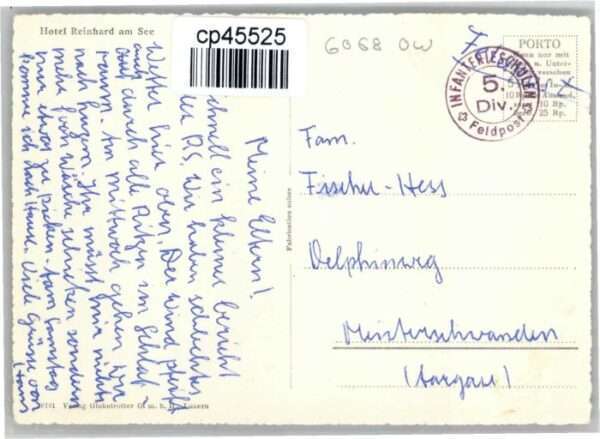 Hotel Reinhard am See
cp45525
6068 OW
PORTO
wenn nur mit
u. Unter-
versehen
5
10 Rp.
25 Rp.
INFANTERIESCHULEN
5.
Div.
Feldpost
Meine Eltern!
Schnell ein kleiner Bericht
der RS. Wir haben schlechtes
Wetter hier oben. Der Wind pfeift
auch durch alle Ritzen im Schlaf-
raum. Am Mittwoch gehen wir
nach Ihr müsst mir nichts
mehr Wäsche schicken sondern
nur etwas zu Am Samstag
komme ich nach Hause. Viele Grüsse von
Hans
Fam.
Fischer-Hess
Delphinweg
Meisterschwanden
(Aargau)
Fabrication suisse
Verlag Globetrotter G. m. b. H. Luzern